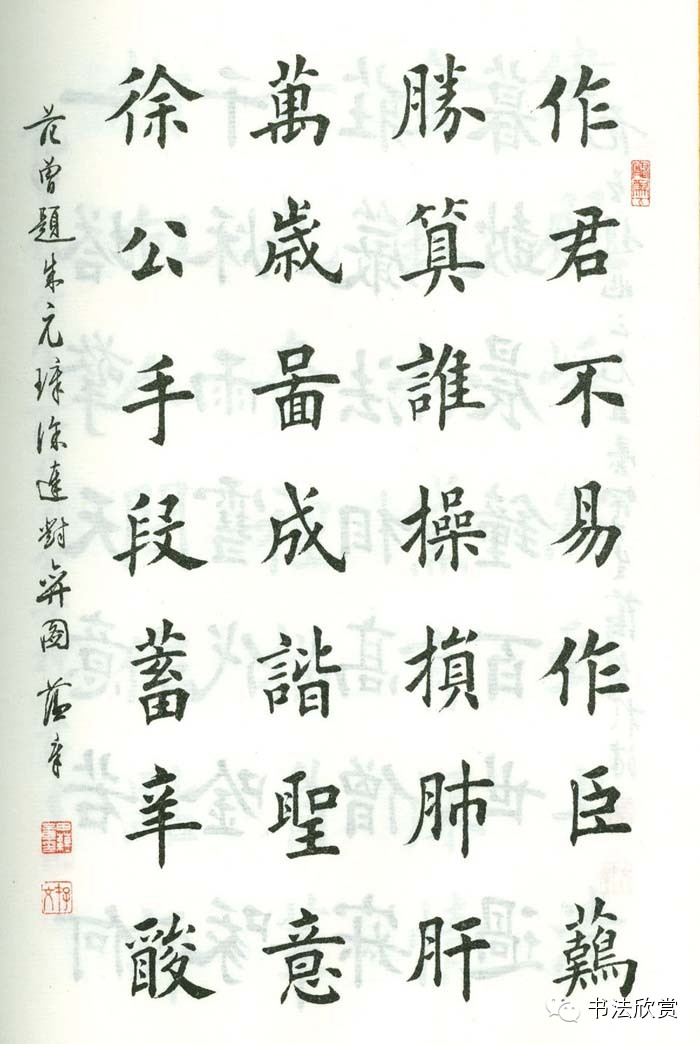 作君不易作臣鷬
勝算誰操損肺肝
萬歳啚成諧聖意
徐公手段蓄辛酸
范曾題朱元璋徐達對弈图 蕴章
书法欣赏